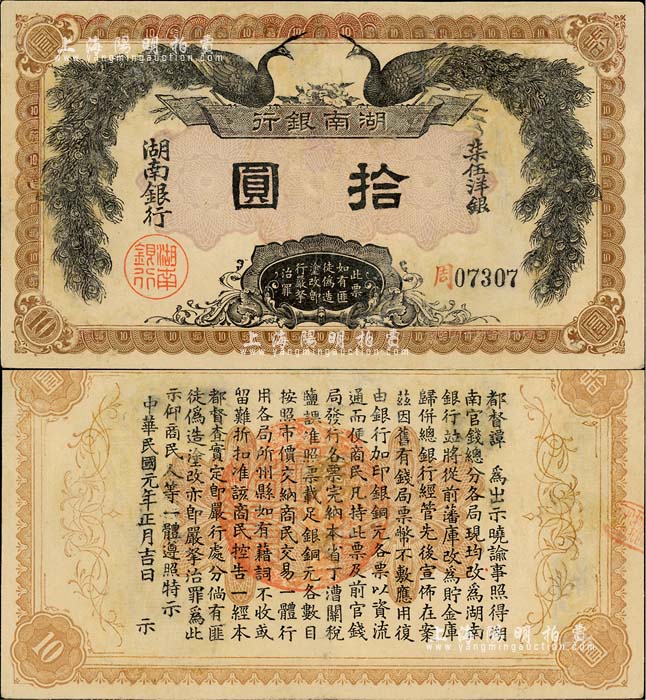 上海陽明拍賣
www.yangmingauction.com
湖南銀行
拾圓
柒伍洋銀
湖南銀行
湖南
銀行
周07307
此票
如有匪
徒偽造
塗改即
行嚴拏
治罪
10
10
上海陽明拍賣
www.yangmingauction.com
都督譚　為出示曉諭事照得湖
南官錢總分各局現均改為湖南
銀行並將從前藩庫改為貯金庫
歸併總銀行經管先後宣佈在案
茲因舊有錢局票幣不敷應用復
由銀行加印銀銅元各票以資流
通而便商民凡持此票及前官錢
局發行各票完納本省丁漕關稅
鹽課准照票載足銀銅元各數目
按照市價交納商民交易一體行
用各局所州縣如有藉詞不收或
留難折扣准該商民控告一經本
都督查實定即嚴行處分倘有匪
徒偽造塗改亦即嚴拏治罪為此
示仰商民人等一體遵照特示
中華民國元年正月吉日　示
10
上海陽明拍賣
www.yangmingauction.com